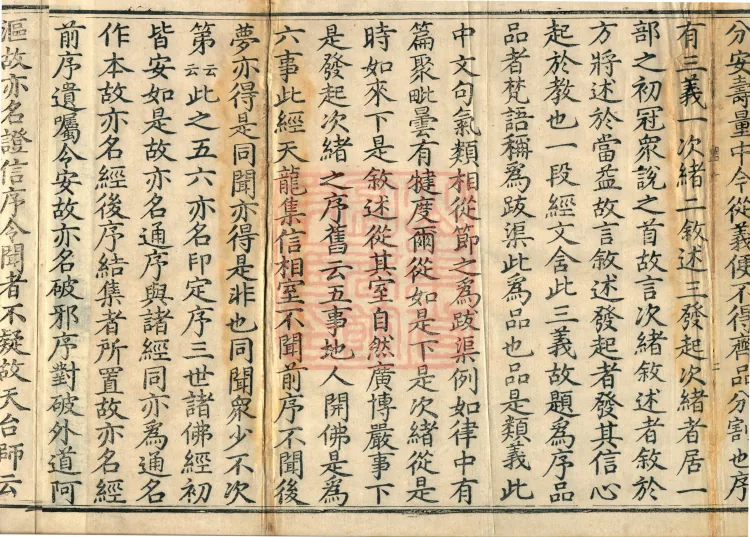 分安壽量中今從義便不得齊品分割也序
有三義一次緒二敘述三發起次緒者居一
部之初冠衆說之首故言次緒敘述者敘於
方將述於當益故言敘述發起者發其信心
起於教也一段經文含此三義故題爲序品
品者梵語稱爲跋渠此爲品也品是類義此
中文句氣類相從節之爲跋渠例如律中有
篇聚毗曇有犍度爾從如是下是次緒從是
時如來下是敘述從其室自然廣博嚴事下
是發起次緒之序舊云五事地人開佛是爲
六事此經天龍集信相室不聞前序不聞後
夢亦得是同聞亦得是非也同聞衆少不次
第云云此之五六亦名印定序三世諸佛經初
皆安如是故亦名通序與諸經同亦爲通名
作本故亦名經後序結集者所置故亦名經
前序遺囑令安故亦名破邪序對破外道阿
漚故亦名證信序令聞者不疑故天台師云